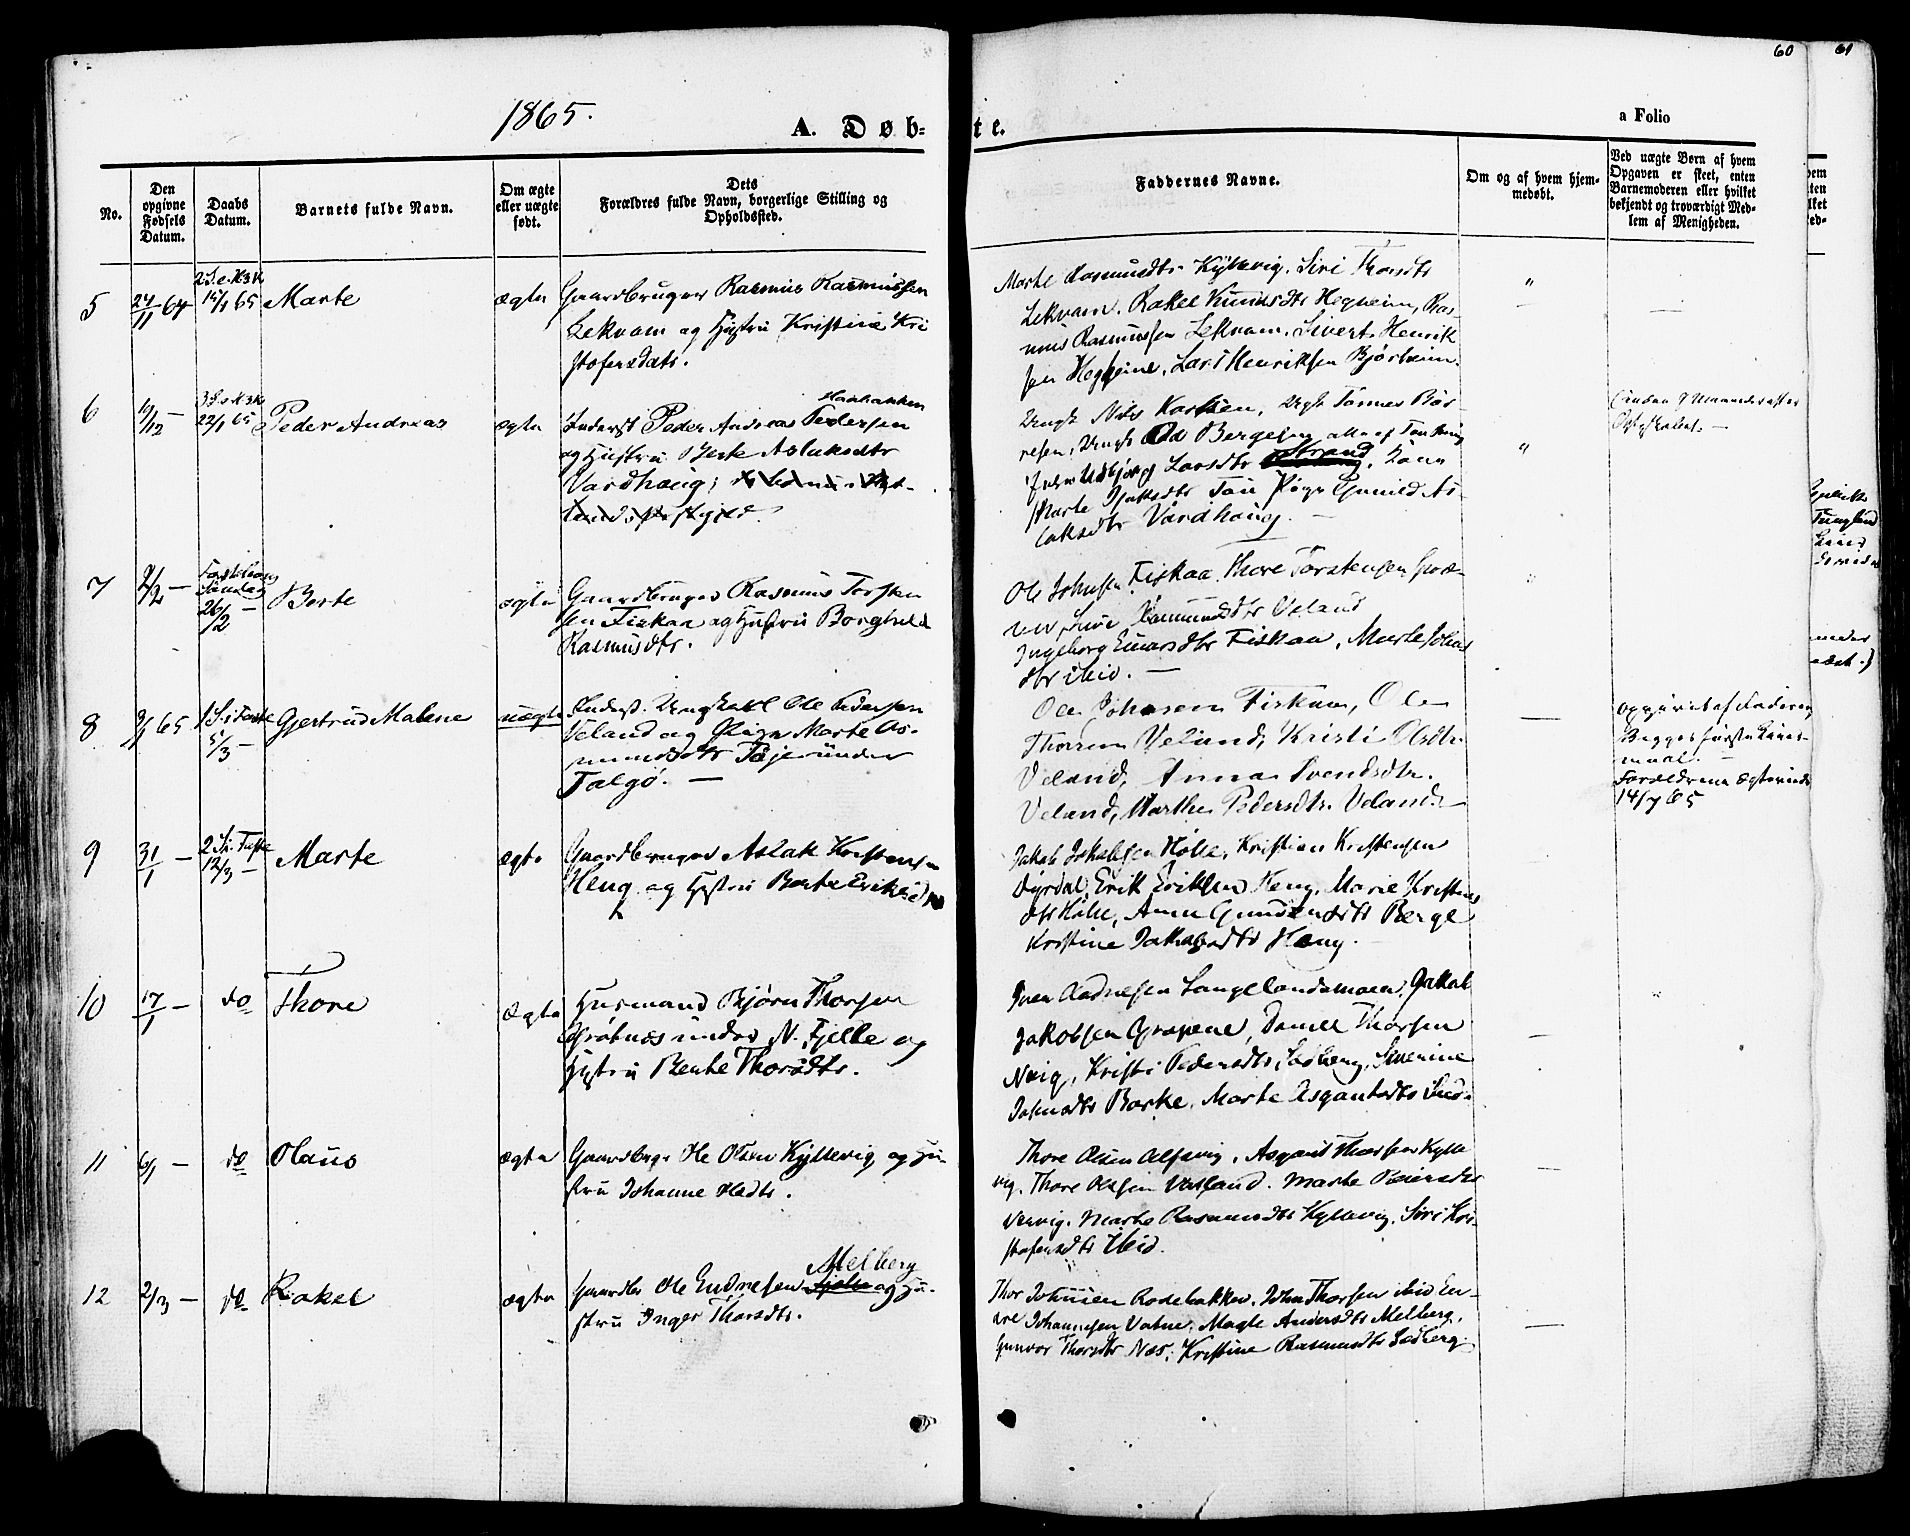 60
61
1865.
A. Døb-
te.
a Folio
No.
Den opgivne Fødsels Datum.
Daabs Datum.
Barnets fulde Navn.
Om ægte eller uægte født.
Dets
Forældres fulde Navn, borgerlige Stilling og
Opholdssted.
Faddernes Navne.
Om og af hvem hjem-
medøbt.
Ved uægte Børn af hvem
Opgaven er skeet, enten
Barnemoderen eller hvilket
bekjendt og troværdigt Med-
lem af Menigheden.
5 24/11 64 2 S. e. H3K 15/1 65 Marte ægte
Gaardbruger Rasmus Rasmussen
Lekvam og Hustru Kristine Kri
stofersdatr.
Marte Rasmusdtr Kyllevig, Siri Thorsdtr
Lekvam, Rakel Hegheim, Ras-
mus Rasmussen Lekvam, Sivert Henrik
sen Hegheim, Lars Henriksen Bjørheim.
6 /12 — 3 S. e. H3K 22/1 65 Peder Andreas ægte
Inderst Peder Andreas Pedersen
og Hustru Berte Aslaksdtr
Vardhaug;
Ungk Nils Karlsen, Ungk Tønnes Bør-
resen, Ungk Od Bergesen alle af
Larsdtr Strand,
Marte dtr Tau Pige Gunild As-
laksdtr Vardhaug. —
7 2/2 — Fastelavns Søndag 26/2 — Berte ægte
Gaardbruger Rasmus Torsten
sen Fiskaa og Hustru Borghild
Rasmusdtr.
Ole Johnsen Fiskaa, Thore Torstensen
Rasmusdtr Veland
Ingeborg Einarsdtr Fiskaa, Marte Johns
dtr ibid. —
8 9/1 65 1 S. i Faste 5/3 — Gjertrud Malene uægte
Inderst. Ungkarl Ole Pedersen
Veland og Pige Marte As-
mundsdtr under
Talgø. —
Ole Johnsen Fiskaa, Ole
Thorsen Veland, Kristi Olsdtr
Veland, Anna Svendsdtr.
Veland, Marthe Pedersdtr. Veland —
opgivet af Faderen
Begges første Leier-
maal. —
Forældrene ægteviede
14/7 65
9 31/1 — 2 S. i Faste 12/3 — Marte ægte
Gaardbruger Aslak Kristensen
Heng og Hustru Berte Eriksdtr
Jakob Jakobsen Holte, Kristian Kristensen
Dyrdal, Erik Eriksen Heng, Marie Kristens
dtr Holte, Anne Gundersdtr Berge
Kristine Jakobsdtr Heng. —
10 17/1 — do Thore ægte
Husmand Bjørn Thorsen
Grøtnæs under N. Fjelde og
Hustru Berte Thorsdtr.
Iver Aadnesen Langelandsmoen, Jakob
Jakobsen Gropene, Daniel Thorsen
Nvig, Kristi Pedersdtr Sedberg, Severine
Johnsdtr Barke, Marte Asgautsdtr
11 6/1 — do Olaus ægte
Gaardbrgr Ole Olsen Kyllevig og Hu-
stru Johanne Olsdtr.
Thore Olsen Alsvig, Asgaut Thorsen Kylle
vig, Thore Olsen Valand. Marte Peersdtr
Vervig. Marte Rasmusdtr Kyllevig, Siri Kri-
stofersdtr ibid.
12 2/3 — do Rakel ægte
Melberg
Gaardbr Ole Endresen og Hu-
stru Inger Thorsdtr.
Thor Johnsen Rodebakken, John Thorsen ibid En-
dre Johannesen Vatne, Magle Andersdtr Melberg,
Gunvor Thorsdtr Næs, Kristine Rasmusdtr Sedberg.